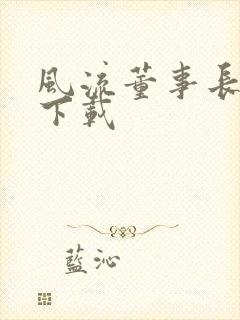 風流董事長
下載
藍沁